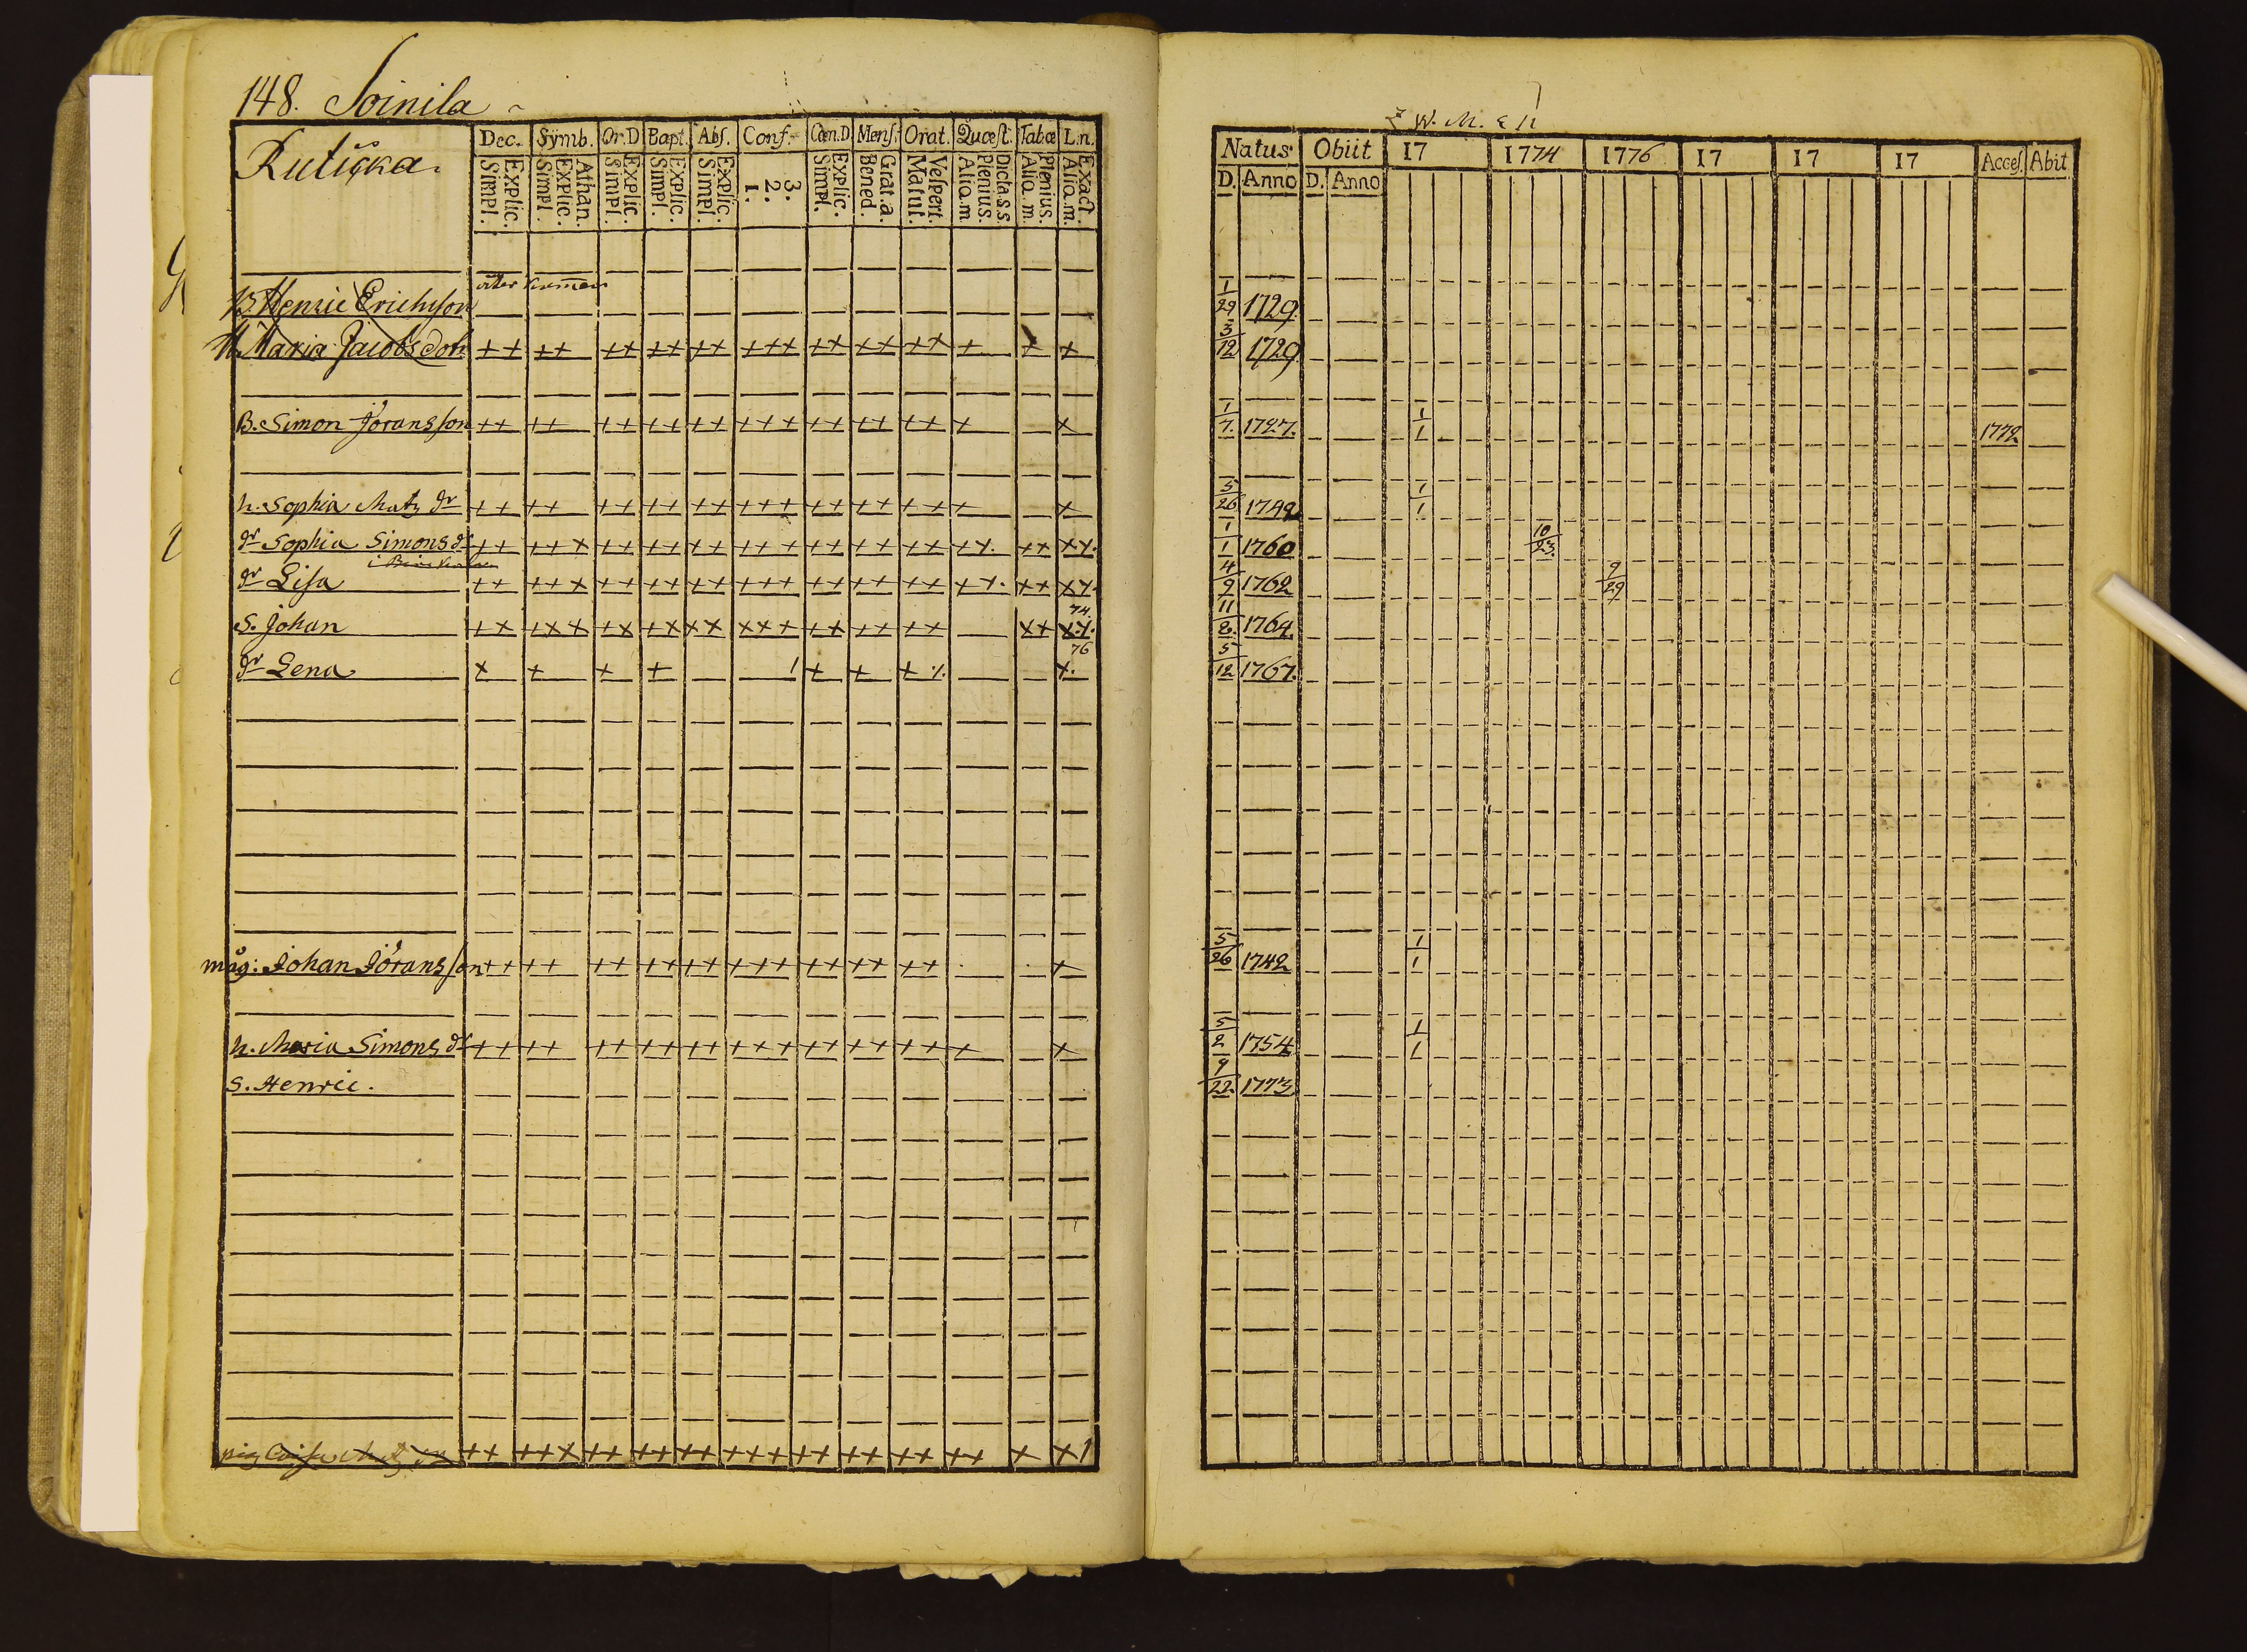 148. Soinila
Ruticka.
Dec. Symb. Or.D Bapt. Abs. Conf. Cœn.D Mens. Orat. Quæst. Tabæ L.n.
Explic. Simpl. Athan. Explic. Simpl. Explic. Simpl. Explic. Simpl. Explic. Simpl. 3. 2. 1. Explic. Simpl. Grat.a. Bened. Vespert. Matut. Dicta s s. Plenius. Aliq.m. Plenius. Aliq.m. Exact. Aliq.m.
B. Henric Erichsson
h. Maria Jacobs dotr ++ ++ ++ ++ ++ +++ ++ ++ ++ + + +
B. Simon Jöransson ++ ++ ++ ++ ++ +++ ++ ++ ++ + x
h. Sophia Matz dr ++ ++ ++ ++ ++ +++ ++ ++ +++ x
dr Sophia Simons dr ++ ++x ++ ++ ++ +++ ++ ++ ++ ++ ++ xx
dr Lisa ++ ++x ++ ++ ++ +++ ++ ++ ++ ++ ++ xx
74
S. Johan ++ +xx +x ++ xx xx+ ++ ++ ++ x+ xx
76
dr Lena x + + + 1 + + + x
måg: Johan Jöransson ++ ++ ++ ++ ++ +++ ++ ++ ++ +
h. Maria Simons dr ++ ++ ++ ++ ++ +++ ++ ++ +++ +
S. Henric.
++ ++x ++ ++ ++ +++ ++ ++ ++ ++ + +1
Natus Obiit 17 1774 1776 17 17 17 Acces. Abit
D. Anno D. Anno
1/29 1729
3/12 1729
1/7. 1727. 1/1 1772
5/26 1742 1/1
1/1 1760 10/23.
4/9 1762 9/29
11/2. 1764
5/12 1767.
5/26 1742 1/1
5/2 1754 1/1
9/22. 1773